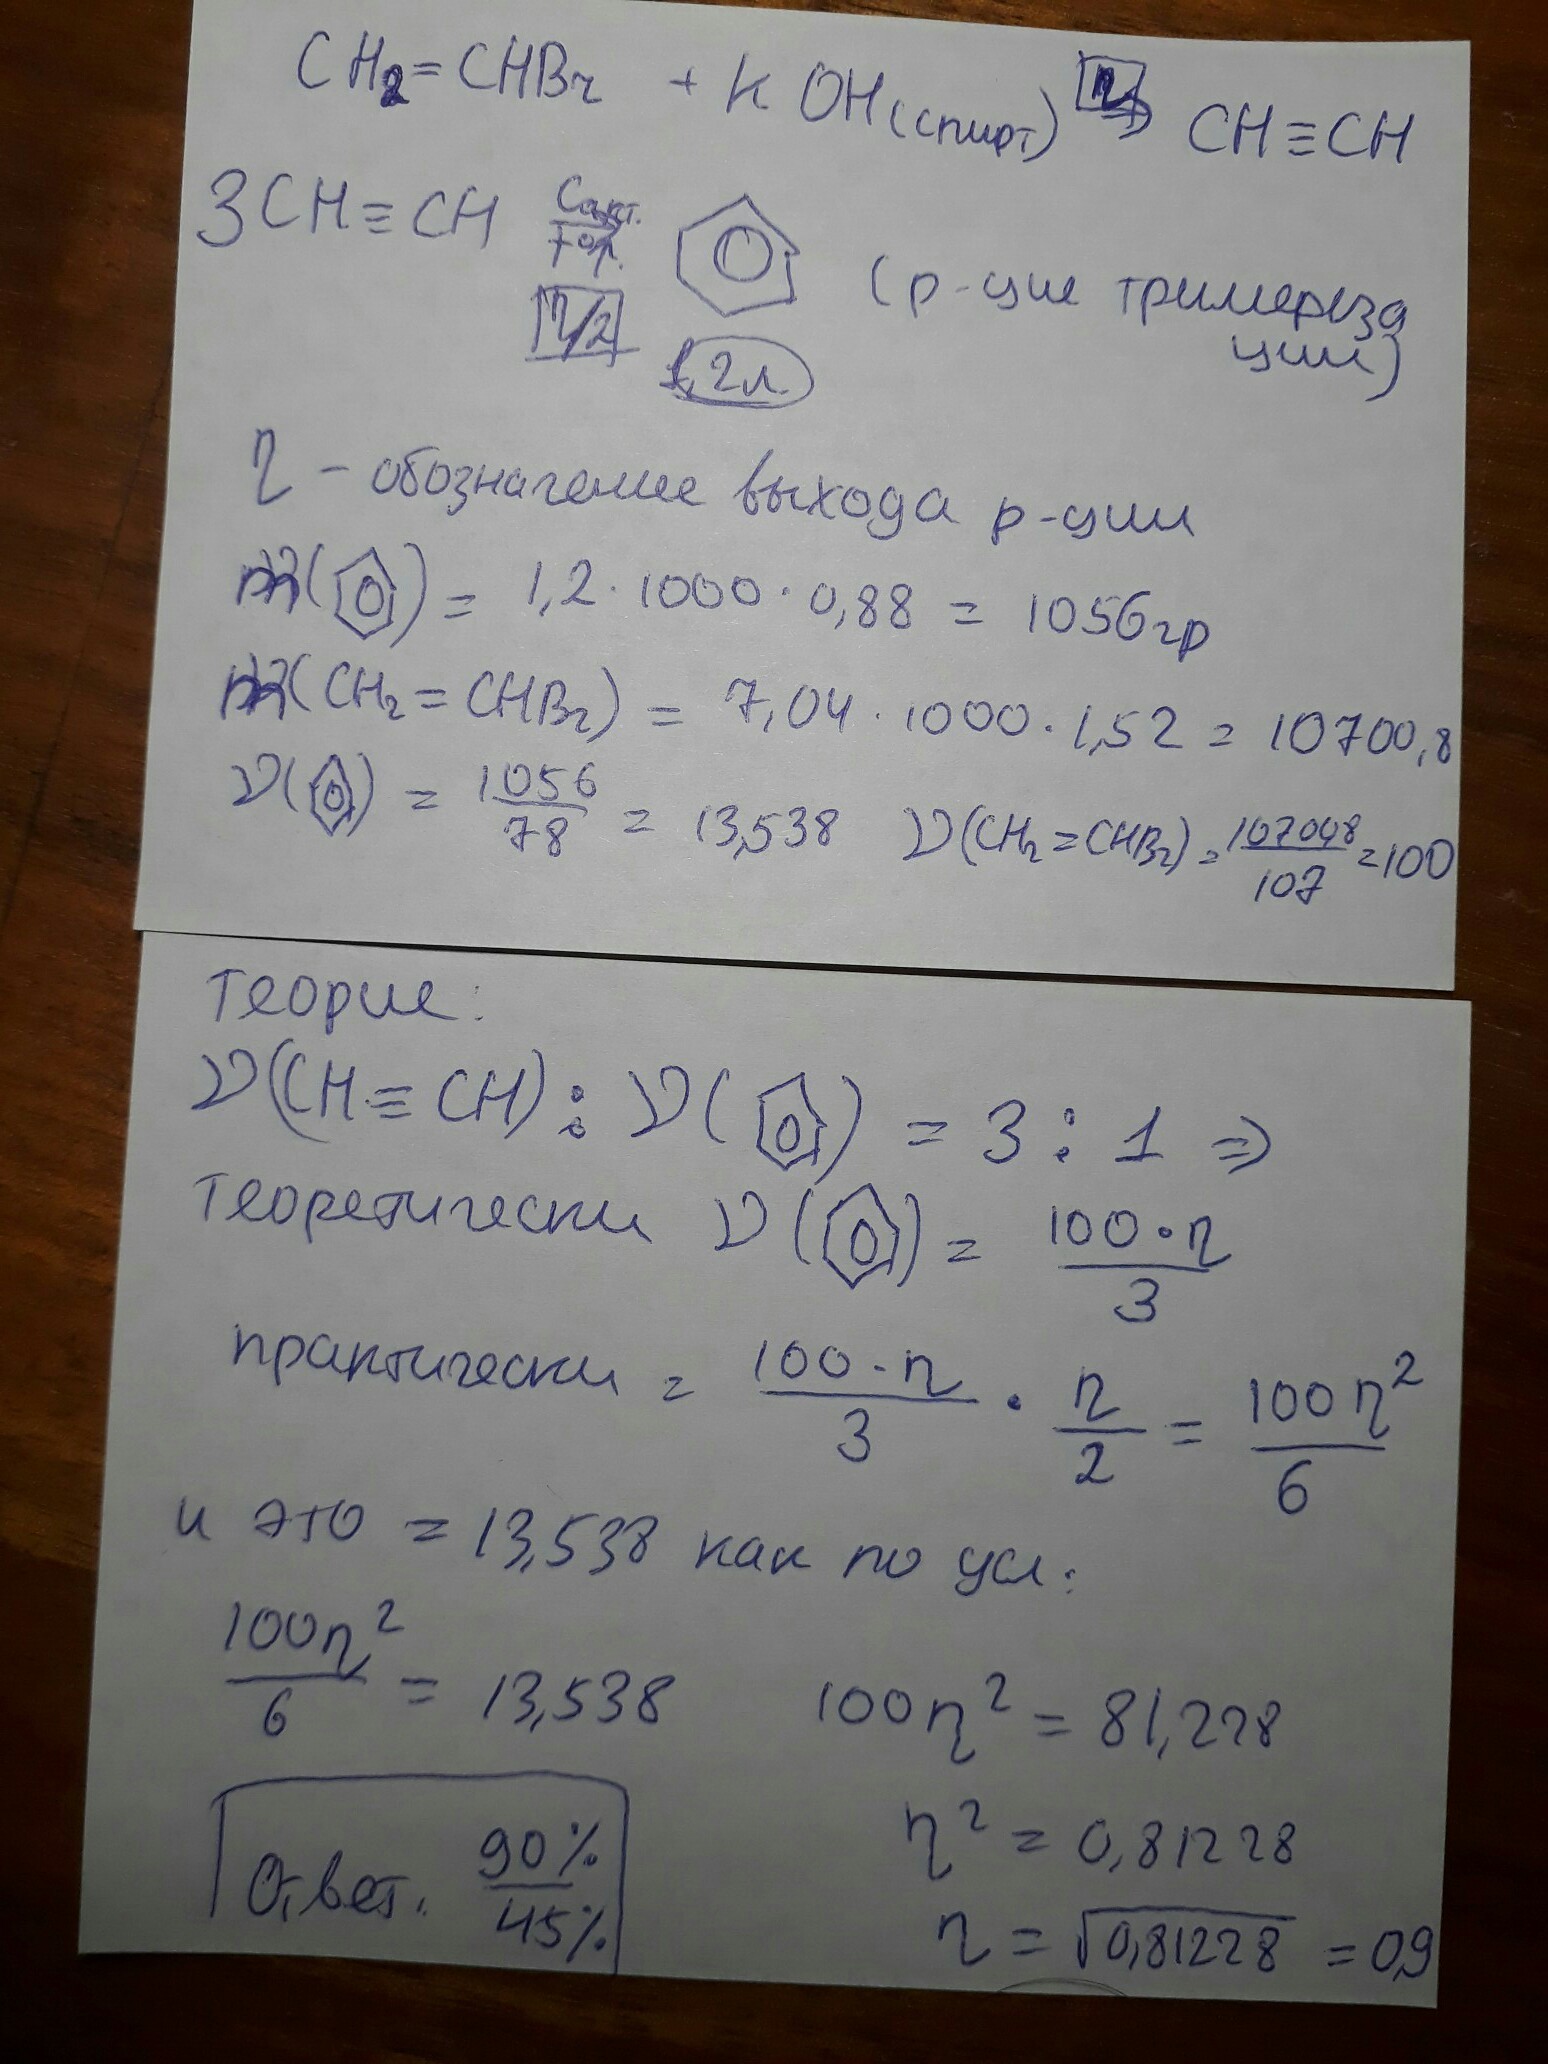 CH₂=CHBr + KOH(спирт) η→ CH≡CH
3CH≡CH Cакт. t°р. (р-ция тримериза
ции)
η/2 1,2л.
η - обозначение выхода р-ции
m(⌬) = 1,2 · 1000 · 0,88 = 1056гр
m(CH₂=CHBr) = 7,04 · 1000 · 1,52 = 10700,8
ν(⌬) = 1056/78 = 13,538 ν(CH₂=CHBr) = 107008/107 = 100
теория:
ν(CH≡CH) : ν(⌬) = 3 : 1 ⇒
теоретически ν(⌬) = 100·η/3
практически = 100·η/3 · η/2 = 100η²/6
и это = 13,538 как по усл.
100η²/6 = 13,538 100η² = 81,228
η² = 0,81228
Ответ. 90%/45%
η = √0,81228 = 0,9